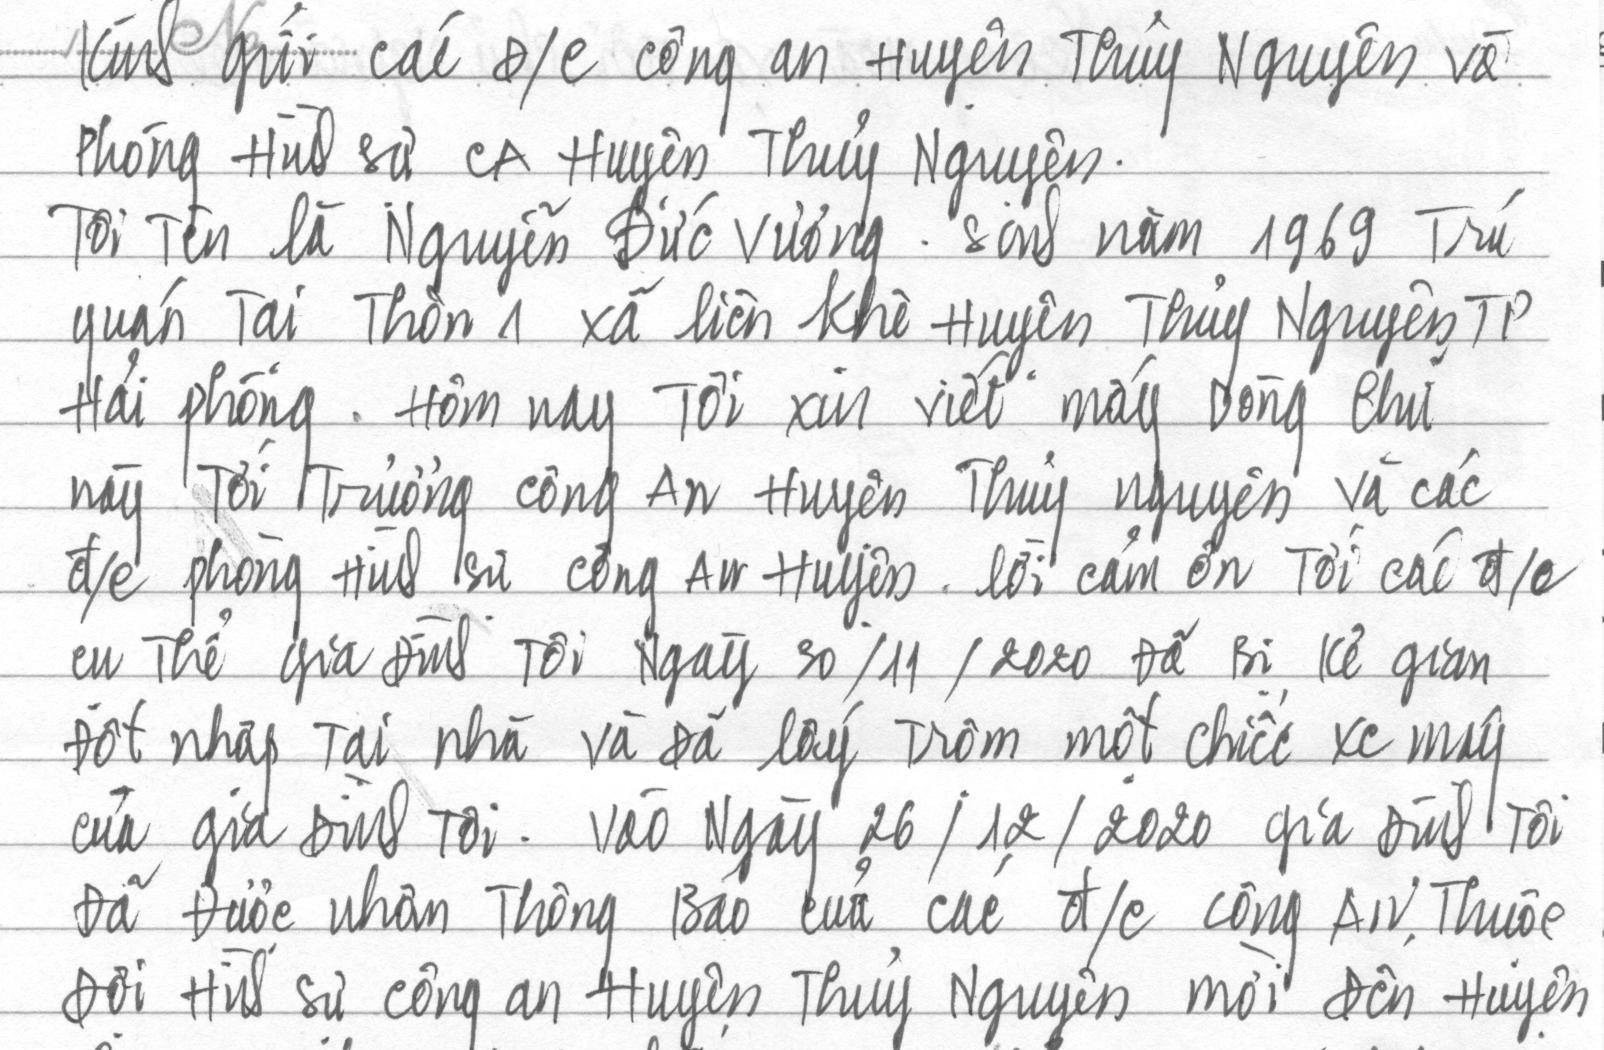 Kính gửi các đ/c công an Huyện Thủy Nguyên và
Phòng Hình sự CA Huyện Thủy Nguyên.
Tôi Tên là Nguyễn Đức Vương. Sinh năm 1969 Trú
quán Tại Thôn 1 xã liên Khê Huyện Thủy Nguyên, TP
Hải phòng. Hôm nay Tôi xin viết mấy Dòng Chữ
này Tới Trưởng công An Huyện Thủy nguyên và các
đ/c phòng Hình sự công An Huyện. lời cảm ơn Tới các đ/c
cụ Thể gia Đình Tôi Ngày 30/11/2020 Đã Bị Kẻ gian
Đột nhập Tại nhà và Đã lấy Trộm một chiếc xe máy
của gia Đình Tôi. Vào Ngày 26/12/2020 gia Đình Tôi
Đã Được nhận Thông Báo của các đ/c công AN, Thuộc
Đội Hình sự công an Huyện Thủy Nguyên mời Đến Huyện